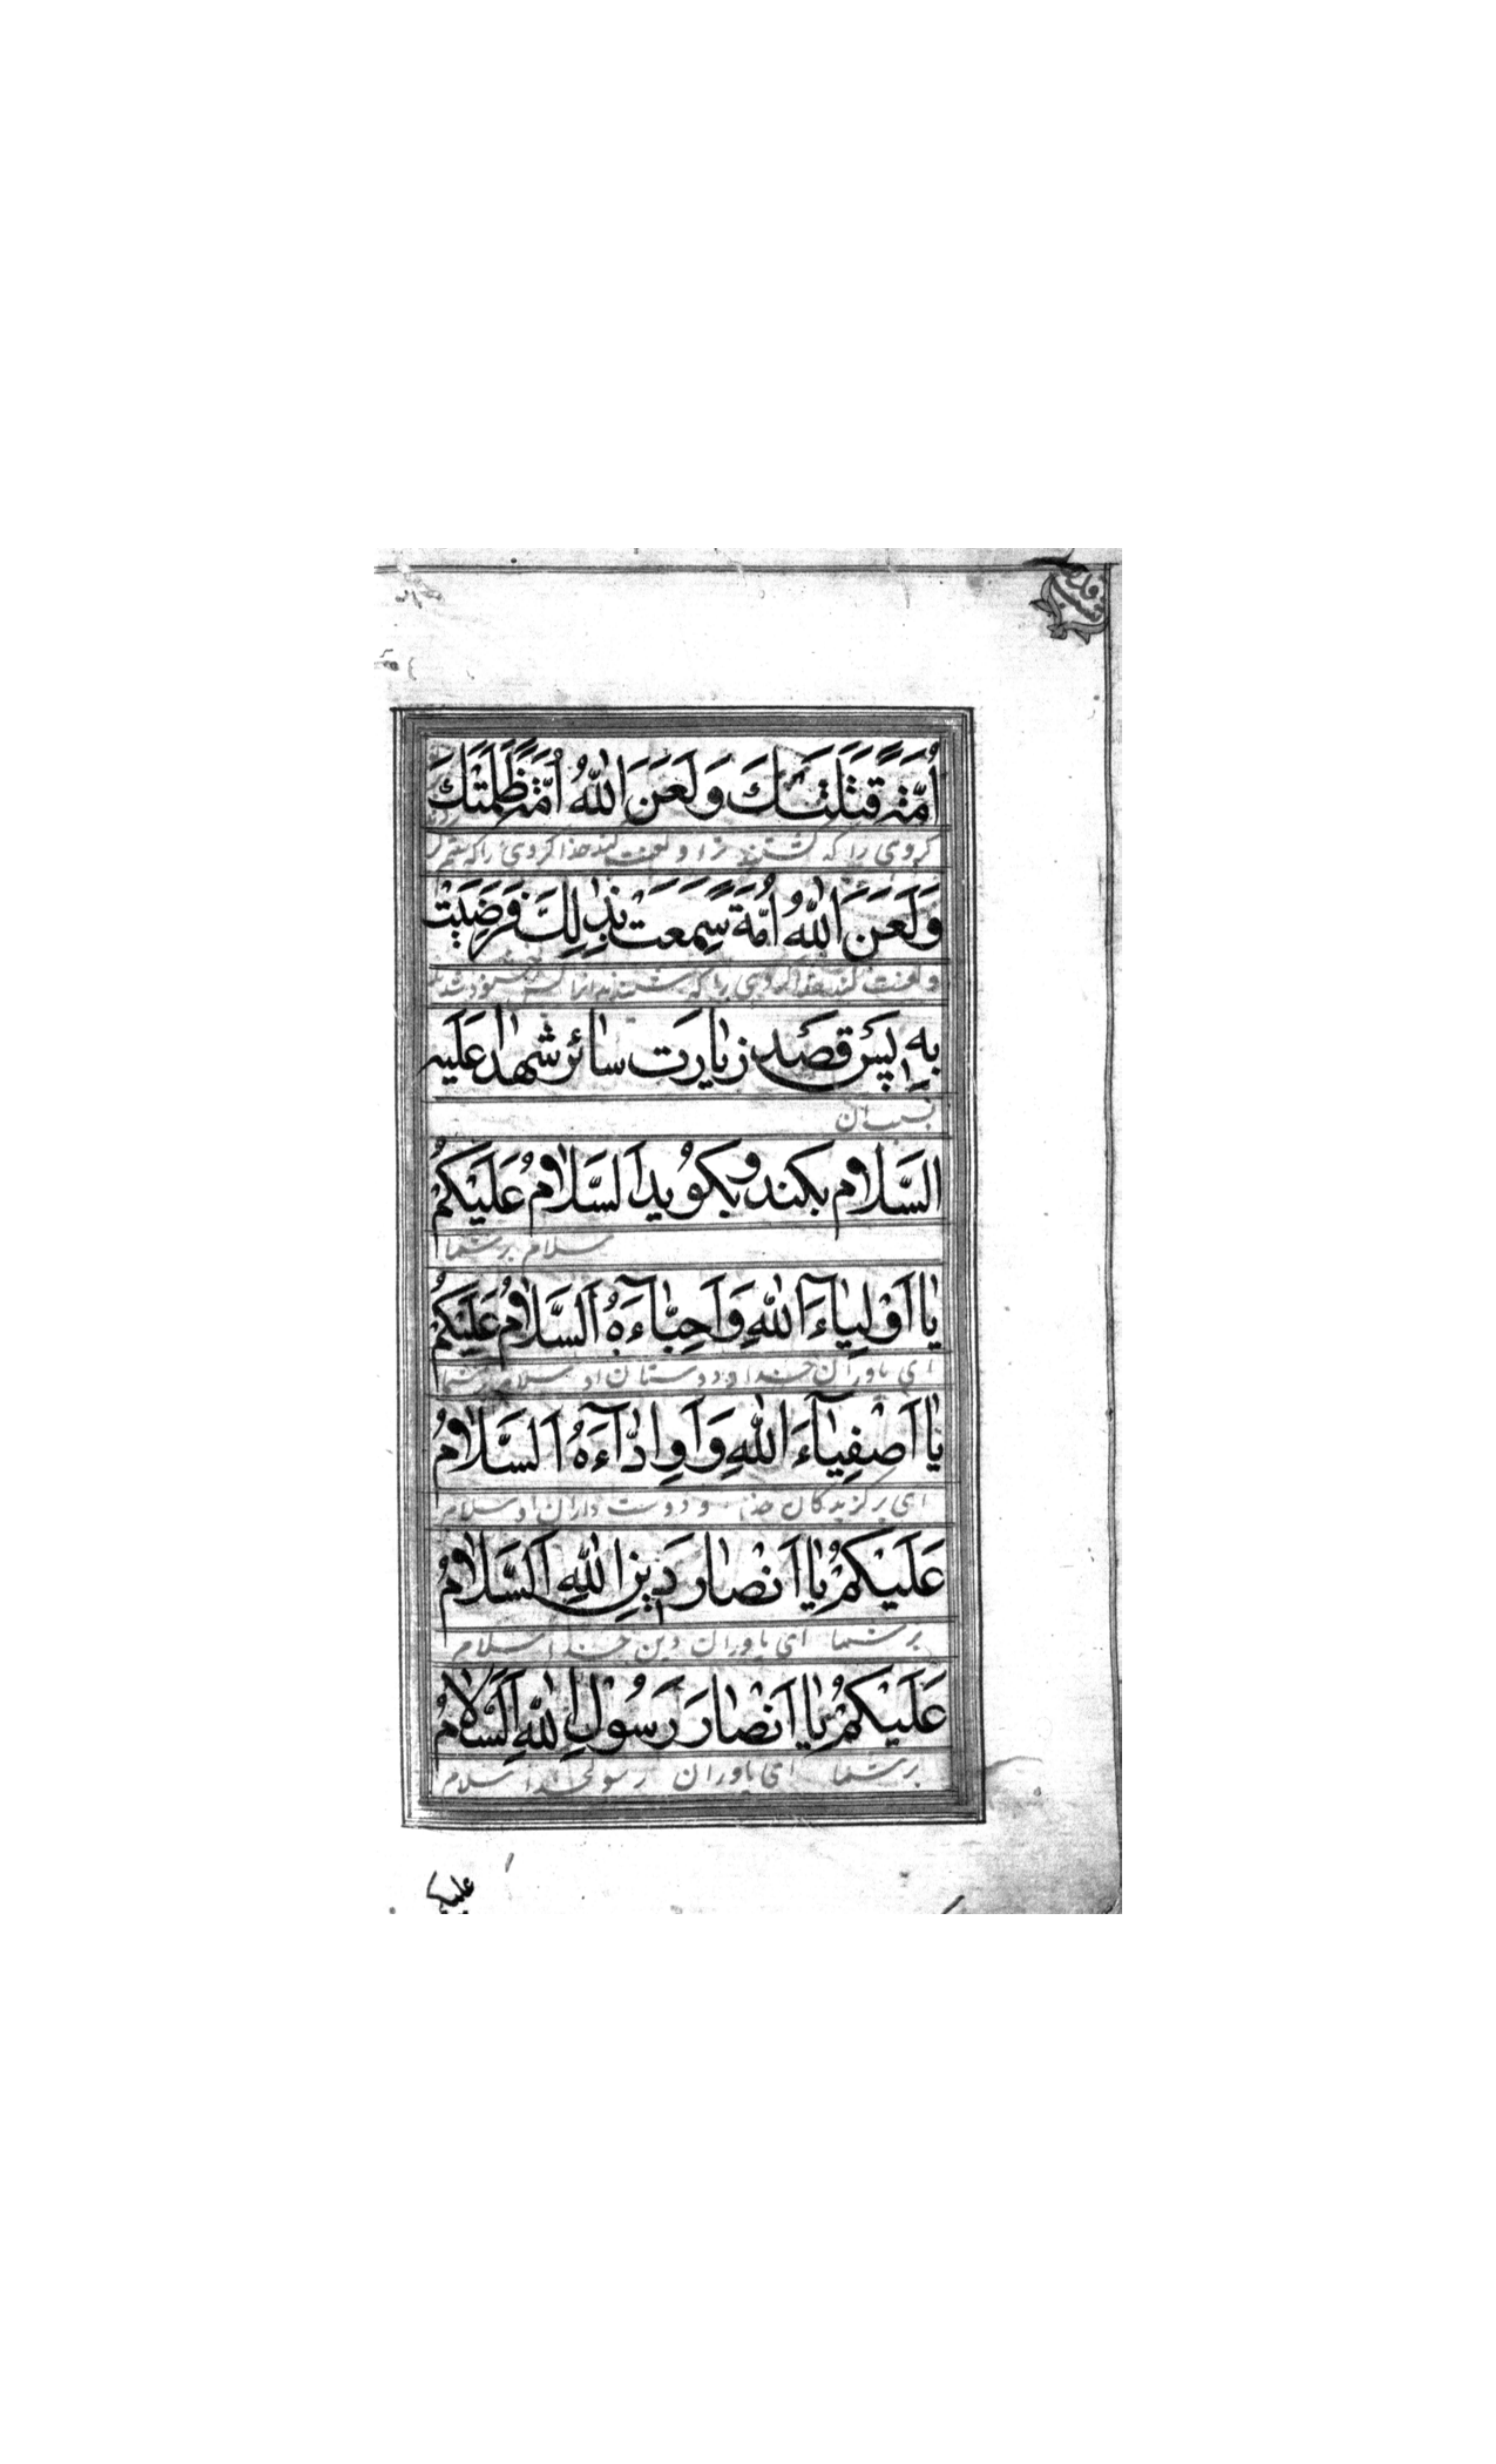 اُمَّةً قَتَلَتْكَ وَلَعَنَ اللهُ اُمَّةً ظَلَمَتْكَ
كروهى را كه كشتند ترا و لعنت كند خدا كروهى را كه ستم كر
وَلَعَنَ اللهُ اُمَّةً سَمِعَتْ بِذٰلِكَ فَرَضِيَتْ
و لعنت كند خدا كروهى را كه شنيدند انرا پس خشنود شدند
بِهِ پس قصد زيارت سائر شهدا عليه
بسبب ان
السَّلام بكند و بكويد اَلسَّلامُ عَلَيْكُمْ
سلام بر شما
يا اَوْلِياءَ اللهِ وَاَحِبّاءَهُ اَلسَّلامُ عَلَيْكُمْ
اى ياوران خدا و دوستان او سلام بر شما
يا اَصْفِيآءَ اللهِ وَاَوِدّآءَهُ اَلسَّلامُ
اى بركزيدكان خدا و دوست داران او سلام
عَلَيْكُمْ يا اَنْصارَ دينِ اللهِ اَلسَّلامُ
بر شما اى ياوران دين خدا سلام
عَلَيْكُمْ يا اَنْصارَ رَسُولِ اللهِ اَلسَّلامُ
بر شما اى ياوران رسول خدا سلام
عليكم